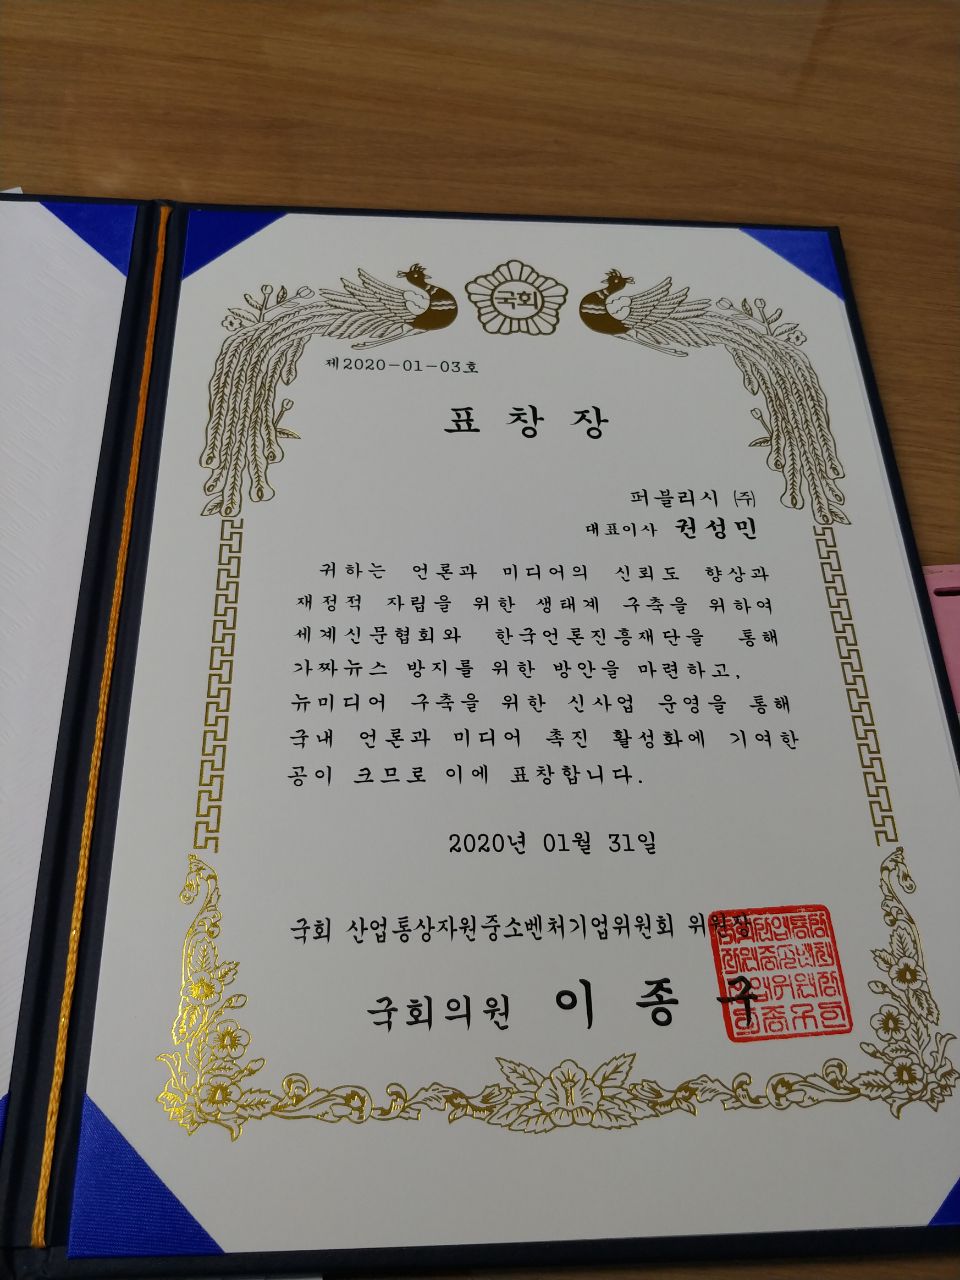 국회
제2020-01-03호
표 창 장
퍼블리시 ㈜
대표이사 권성민
귀하는 언론과 미디어의 신뢰도 향상과
재정적 자립을 위한 생태계 구축을 위하여
세계신문협회와 한국언론진흥재단을 통해
가짜뉴스 방지를 위한 방안을 마련하고,
뉴미디어 구축을 위한 신사업 운영을 통해
국내 언론과 미디어 촉진 활성화에 기여한
공이 크므로 이에 표창합니다.
2020년 01월 31일
국회 산업통상자원중소벤처기업위원회 위원장
국회의원 이 종 구